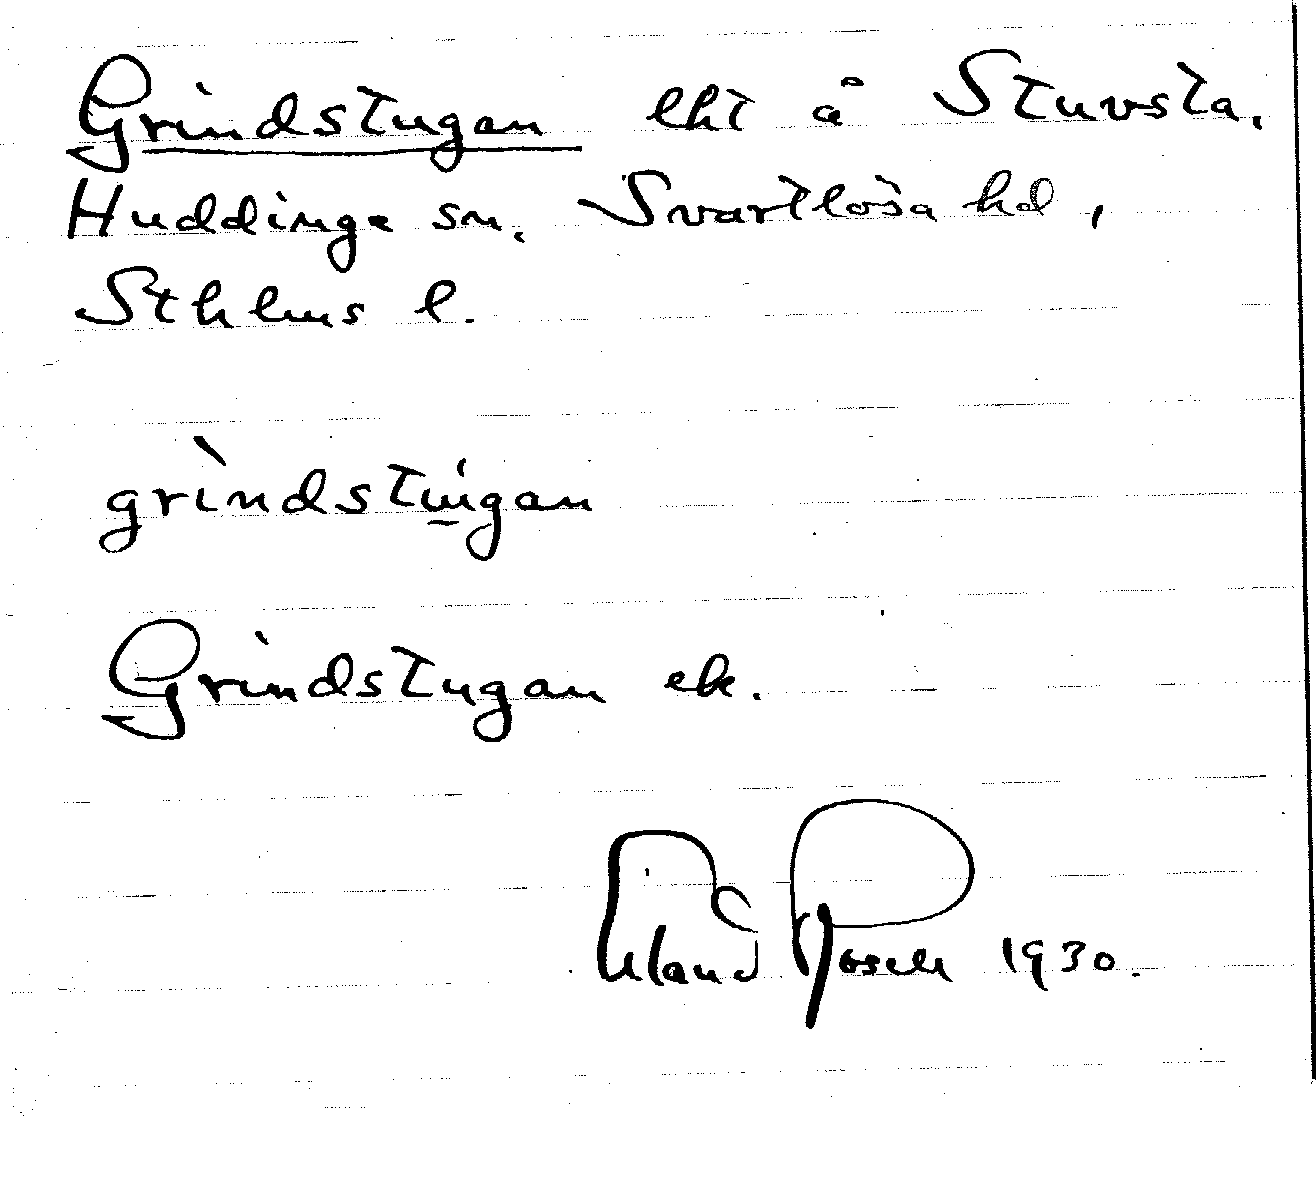 Grindstugan lht å Stuvsta,
Huddinge sn, Svartlösa hd,
Sthlms l.
grindstugan
Grindstugan ek.
Erland Rosell 1930.